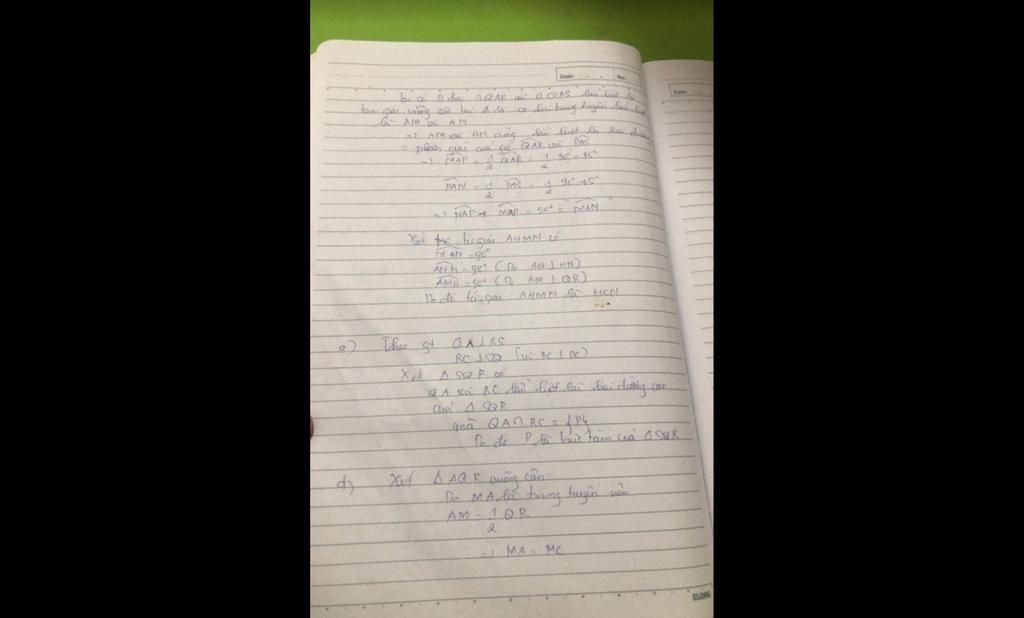 Date: No:
Date:
b. có Δ QAR và Δ QAS lần lượt là
tam giác vuông cân tại A có hai trung tuyến lần lượt
là AM và AN
=> AM và AM cũng lần lượt là hai đường
phân giác của góc QAR và PAS
=> MAP = 1/2 QAR = 1/2 90° = 45°
PAN = 1/2 PAS = 1/2 90° = 45°
=> NAP + MAP = 90° = MAN
Xét tứ giác AHMN có
MAN = 90°
ANH = 90° (Do AN ⊥ HN)
AMH = 90° (Do AM ⊥ QR)
Do đó tứ giác AHMN là HCN
c) Theo gt QA ⊥ RS
RC ⊥ SQ (vì ⊥ )
Xét Δ SQR có
QA và RC lần lượt là hai đường cao
của Δ SQR
mà QA ∩ RC = {P}
Do đó P là trực tâm của Δ SQR
d) Xét Δ AQR vuông cân
Do MA là trung tuyến nên
AM = 1/2 QR
=> MA = MC
KLONG